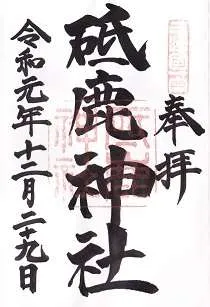 奉拝
砥鹿神社
令和元年十二月二十九日